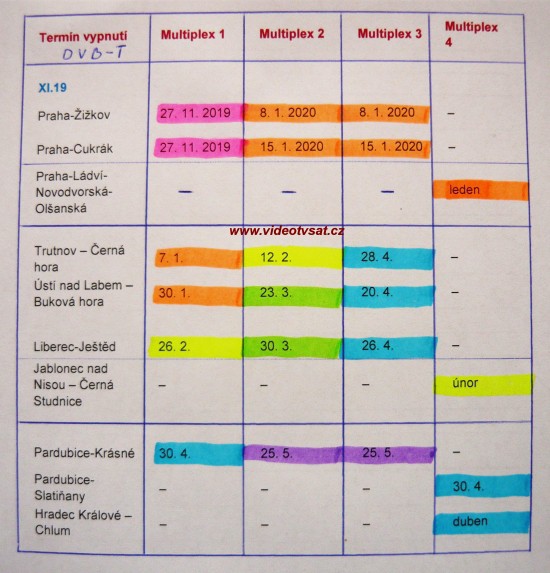 Termín vypnutí Multiplex 1 Multiplex 2 Multiplex 3 Multiplex
DVB-T 4
XI.19
Praha-Žižkov 27. 11. 2019 8. 1. 2020 8. 1. 2020 –
Praha-Cukrák 27. 11. 2019 15. 1. 2020 15. 1. 2020 –
Praha-Ládví-
Novodvorská- – – – leden
Olšanská
www.videotvsat.cz
Trutnov – Černá 7. 1. 12. 2. 28. 4. –
hora
Ústí nad Labem – 30. 1. 23. 3. 20. 4. –
Buková hora
Liberec-Ještěd 26. 2. 30. 3. 26. 4. –
Jablonec nad
Nisou – Černá – – – únor
Studnice
Pardubice-Krásné 30. 4. 25. 5. 25. 5. –
Pardubice-
Slatiňany – – – 30. 4.
Hradec Králové –
Chlum – – – duben